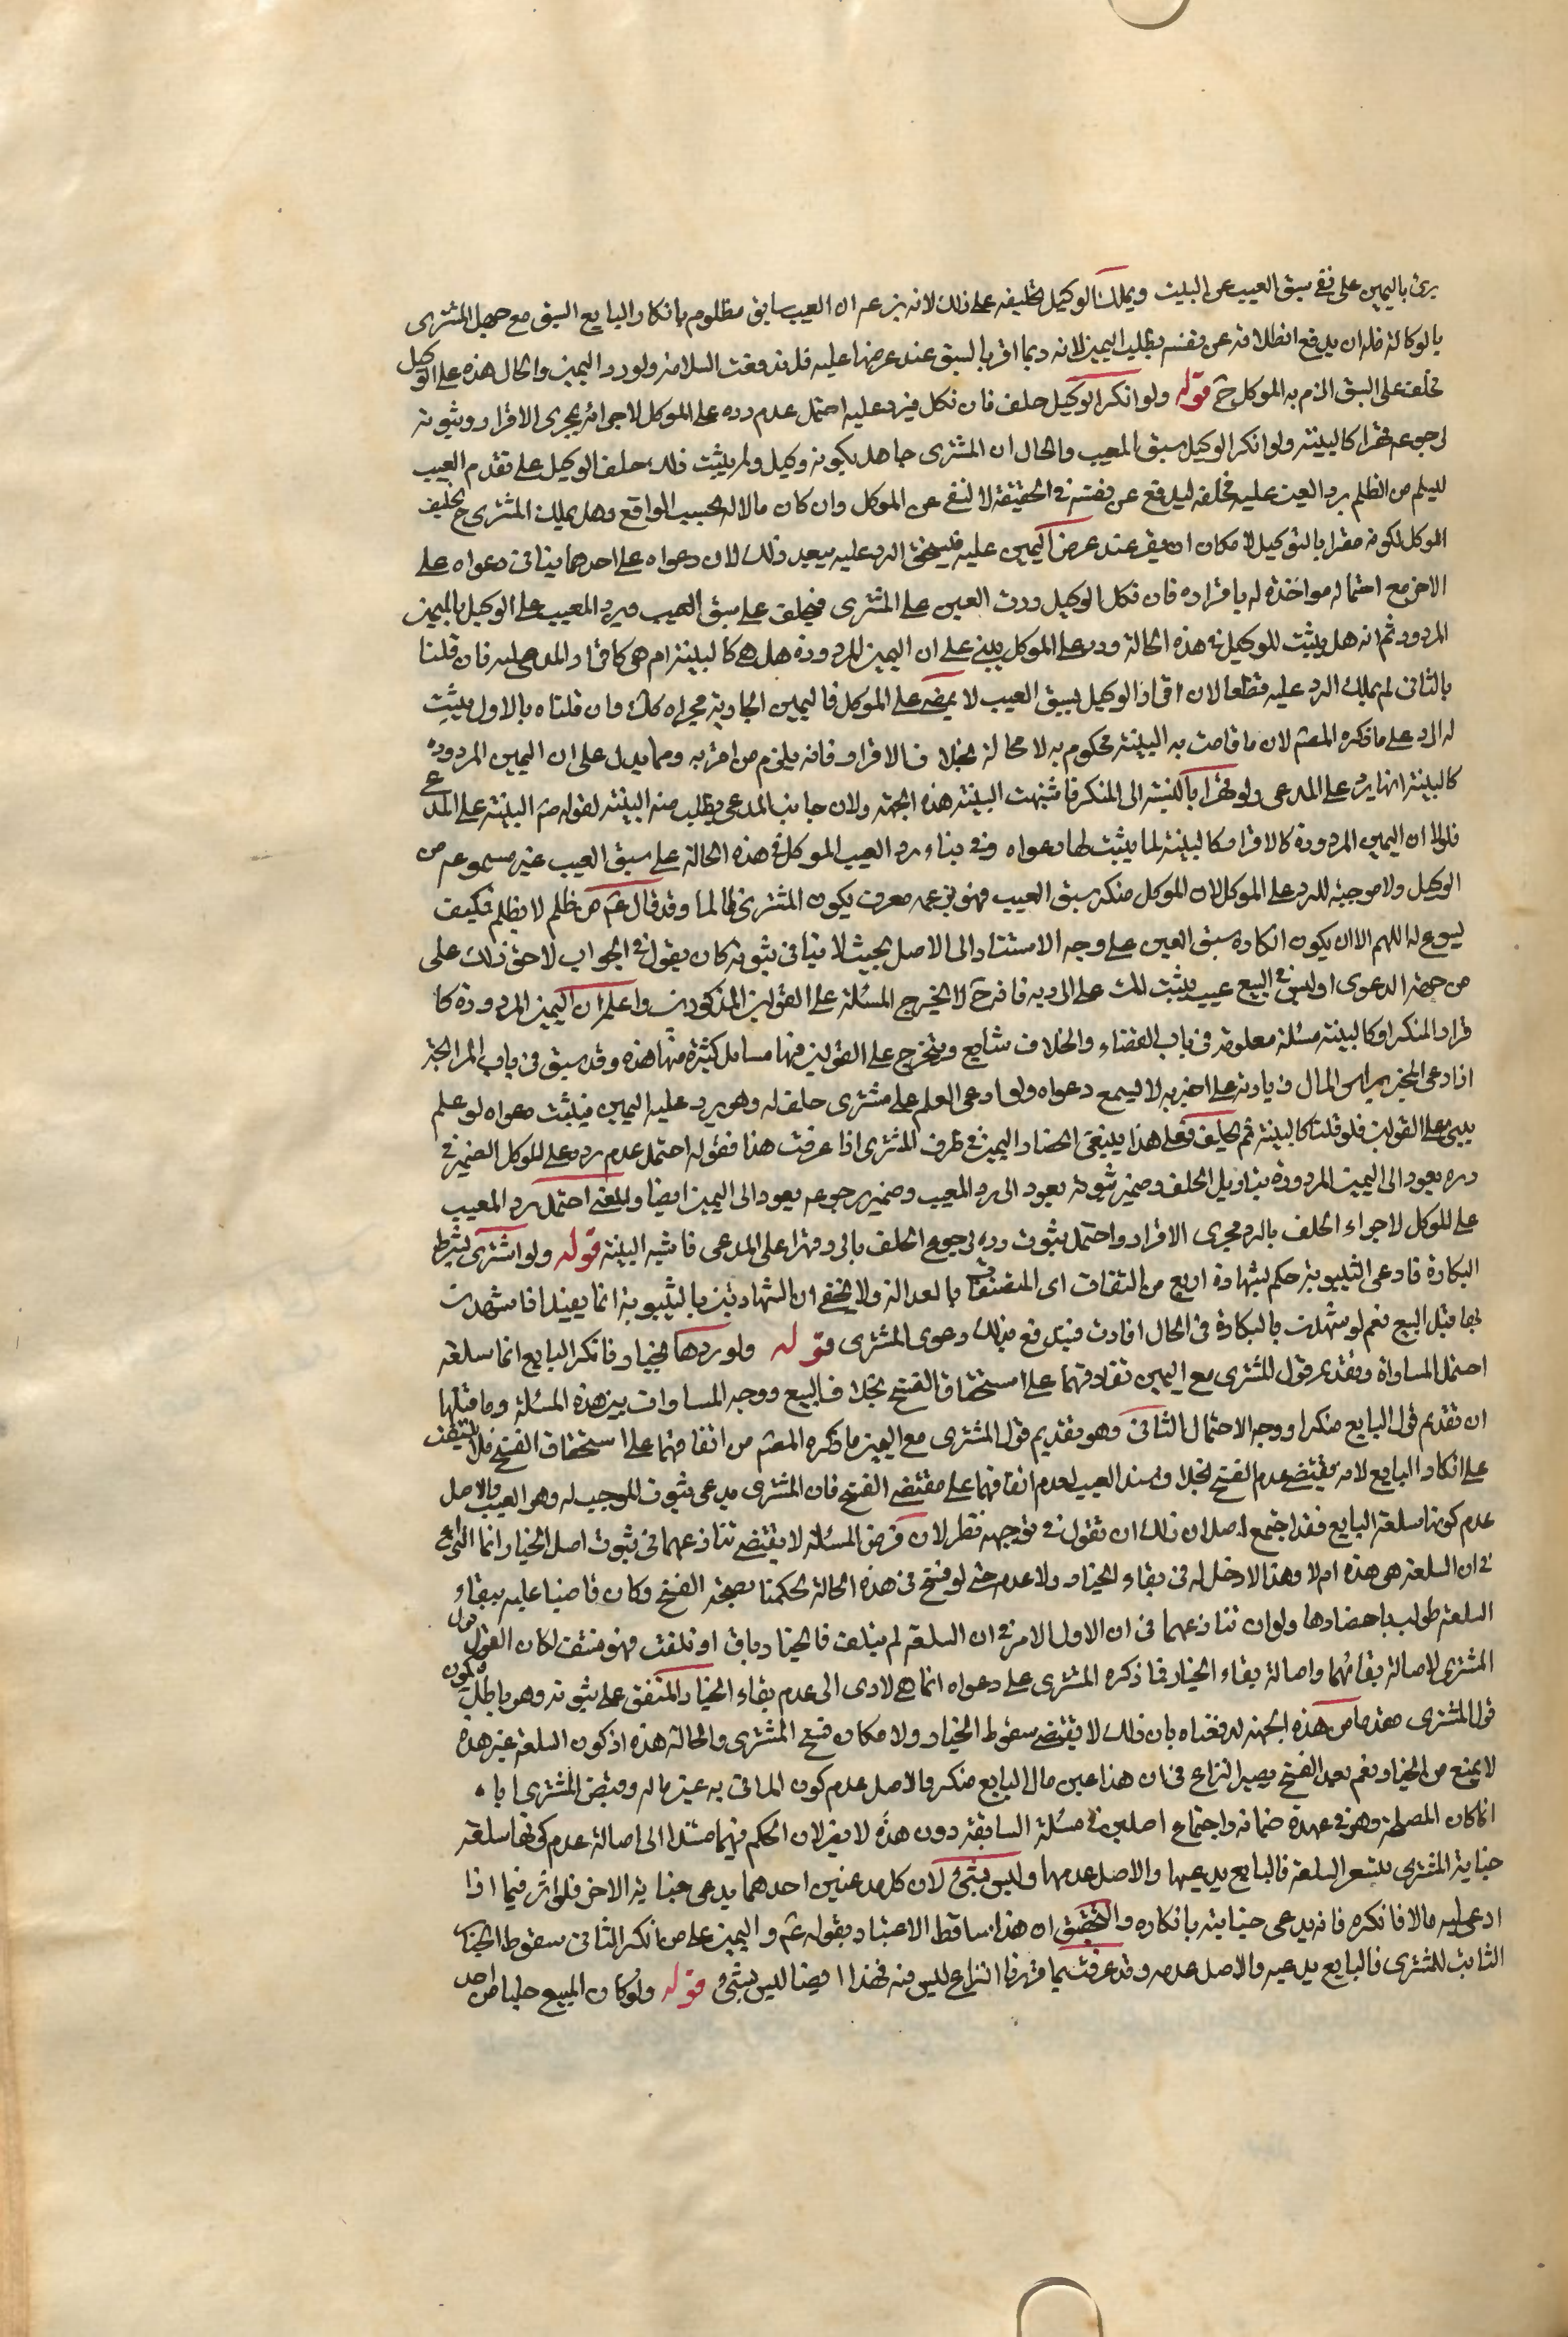 برئ باليمين على نفى سبق العيب على البت ويملك الوكيل تحليفه على ذلك لانه بزعمه ان العيب سابق مظلوم بانكار البايع السبق مع جهل المشترى
بالوكالة فله ان يدفع الظلامة عن نفسه بطلب اليمين لانه ربما اقر بالسبق عند عرضها عليه فلتدفعت السلامة ولو رد اليمين والحال هذه على الوكيل
فحلف على السبق الزم به الموكل ح قوله ولو انكر الوكيل حلف فان نكل فرد عليه احتمل عدم رده على الموكل لاجرائه مجرى الاقرار وثبوته
لرجوعه قهرا كالبينة ولو انكر الوكيل سبق العيب والحال ان المشترى جاهل بكونه وكيل ولم يثبت ذلك حلف الوكيل على تقدم العيب
ليسلم من الظلم برد العين عليه فحلفه ليدفع عن نفسه فى الحقيقة لا لنفى عن الموكل وان كان مالا له بحسب الواقع وهل يملك المشترى ح تحليف
الموكل لكونه مقرا بالتوكيل لامكان ان يقر عند عرض اليمين عليه فيستحق الرد عليه يبعد ذلك لان دعواه على احدهما ينافى دعواه على
الاخر مع احتماله مواخذة له باقراره فان نكل الوكيل ردت اليمين على المشترى فيحلف على سبق العيب ويرد المعيب على الوكيل باليمين
المردود ثم انه هل يثبت للوكيل فى هذه الحالة رده على الموكل يبنى على ان اليمين المردودة هل هى كالبينة ام هى كاقرار المدعى عليه فان قلنا
بالثانى لم يملك الرد عليه قطعا لان اقرار الوكيل بسبق العيب لا يمضى على الموكل فاليمين الجارية مجراه كك وان قلناه بالاول يثبت
له الرد على ما ذكره المصنف لان ما قامت به البينة محكوم به لا محالة بخلاف الاقرار فانه يلزم من اقر به ومما يدل على ان اليمين المردودة
كالبينة انها يرد على المدعى ولو قهرا بالنسبة الى المنكر فاشبهت البينة هذه الجهة ولان جانب المدعى يطلب منه البينة لقوله ص البينة على المدعى
فلولا ان اليمين المردودة كالاقرار كالبينة لما يثبت لها دعواه وفى بناء رد العيب الموكل فى هذه الحالة على سبق العيب غير مسموعه من
الوكيل ولا موجبة للرد على الموكل لان الموكل منكر سبق العيب فهو بزعمه معرف بكون المشترى ظالما وقد قال ع من ظلم لا يظلم فكيف
يسوغ له اللهم الا ان يكون انكاره سبق العين على وجه الاستناد الى الاصل بحيث لا ينافى ثبوته كان يقول فى الجواب لا حق لك على
من جهة الدعوى او ليس فى البيع عيب يثبت لك على الرد به فانه ح لا تخرج المسئلة على القولين المذكورين واعلم ان اليمين المردودة كا
قرار المنكر او كالبينة مسئلة معلومة فى باب القضاء والخلاف شايع ويتخرج على القولين فيها مسائل كثيرة منها هذه وقد سبق فى باب المرابحة
اذا ادعى المخبر براس المال زيادته على ما اخبر به لا يسمع دعواه ولو ادعى العلم على مشترى حلف له وهو يرد عليه اليمين فيثبت دعواه لو علم
يبنى على القولين فلو قلنا كالبينة ثم يحلف فعلى هذا ينبغى اليمين فى طرف المشترى اذا عرفت هذا فقوله احتمل عدم رده على الموكل الضمير فى
رده يعود الى اليمين المردودة بتاويل الحلف وضمير ثبوته يعود الى رد المعيب وضمير رجوعه يعود الى اليمين ايضا والمعنى احتمل رد المعيب
على الموكل لاجراء الحلف بالرد مجرى الاقرار واحتمل ثبوت رده لرجوع الحلف بالرد قهرا على المدعى فاشبه البينة قوله ولو اشترى بشرط
البكارة فادعى الثيبوبة حكم بشهادة اربع من الثقات اى المتصفات بالعدالة ولا يخفى ان الشهادتين بالثيبوبة انما يفيد اذا شهدت
بها قبل البيع نعم لو شهدت بالبكارة فى الحال افادت فيندفع بذلك دعوى المشترى قوله ولو ردها بخيار فانكر البايع انها سلعته
احتمل المساواة وتقدم قول المشترى مع اليمين تفاقهما على استحقاق الفسخ بخلاف البيع ووجه المساوات بين هذه المسئلة وما قبلها
ان تقديم قول البايع منكرا ووجه الاحتمال الثانى وهو تقديم قول المشترى مع اليمين ما ذكره المصنف من اتفاقهما على استحقاق الفسخ فلا
على انكار البايع لانه يقتضى عدم الفسخ بخلاف العيب لعدم اتفاقهما على مقتضى الفسخ فان المشترى يدعى ثبوت الموجب له وهو العيب والاصل
عدم كونها سلعة البايع فقد اجتمع اصلان ذلك ان تقول فى توجيهه نظر لان فرض المسئلة لا يقتضى تنازعهما فى ثبوت اصل الخيار انما النزاع
فى ان السلعة هى هذه ام لا وهذا لا دخل له فى بقاء الخيار ولا عدمه حتى لو فسخ فى هذه الحالة لحكمنا بصحة الفسخ وكان قاضيا عليه ببقاء
السلعة طولب باحضارها ولو ان تنازعهما فى ان الاول الامر فى ان السلعة لم يتلف فالخيار باق او تلفت فهو منتف لكان القول قول
المشترى لاصالة بقائهما واصالة بقاء الخيار فما ذكره المشترى على دعواه انما هى لادى الى عدم بقاء الخيار المتفق على ثبوته وهو باطل فيكون
قول المشترى مقدما من هذه الجهة لدفعناه بان ذلك لا يقتضى سقوط الخيار ولا مكان فسخ المشترى والحالة هذه اذ كون السلعة غير هذه
لا يمنع من الخيار ونعم بعد الفسخ يصير النزاع فى ان هذا عين مال البايع منكر والاصل عدم كون الماتى به عين ماله وقبض المشترى ايا
انما كان لمصلحة وهو فى عهدة ضمانه واجتماع اصلين فى مسئلة السابقة دون هذه لا يضر لان الحكم فيهما مستند الى اصالة عدم كونها سلعته
خيانة المشترى بتغير السلعة فالبايع يدعيها والاصل عدمها وليس بشئ لان كل مدعيين احدهما يدعى خيانة الاخر فلو اثر فيما اذا
ادعى اليه مالا فانكره فانه يدعى خيانته بانكاره والتحقيق ان هذا ساقط الاعتبار بقوله ع واليمين على من انكر الثانى سقوط الخيار
الثابت للمشترى فالبايع يدعيه والاصل عدمه وقد عرفت بما قررنا النزاع ليس فيه فهذا ايضا ليس بشئ قوله ولو كان المبيع حليا من احد